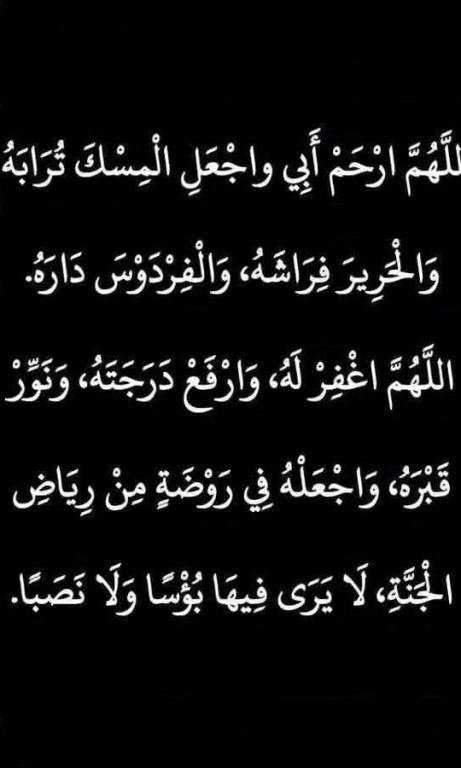 للَّهُمَّ ارْحَمْ أَبِي واجْعَلِ الْمِسْكَ تُرَابَهُ
وَالْحَرِيرَ فِرَاشَهُ، وَالْفِرْدَوْسَ دَارَهُ.
اللَّهُمَّ اغْفِرْ لَهُ، وَارْفَعْ دَرَجَتَهُ، وَنَوِّرْ
قَبْرَهُ، وَاجْعَلْهُ فِي رَوْضَةٍ مِنْ رِيَاضِ
الْجَنَّةِ، لَا يَرَى فِيهَا بُؤْسًا وَلَا نَصَبًا.